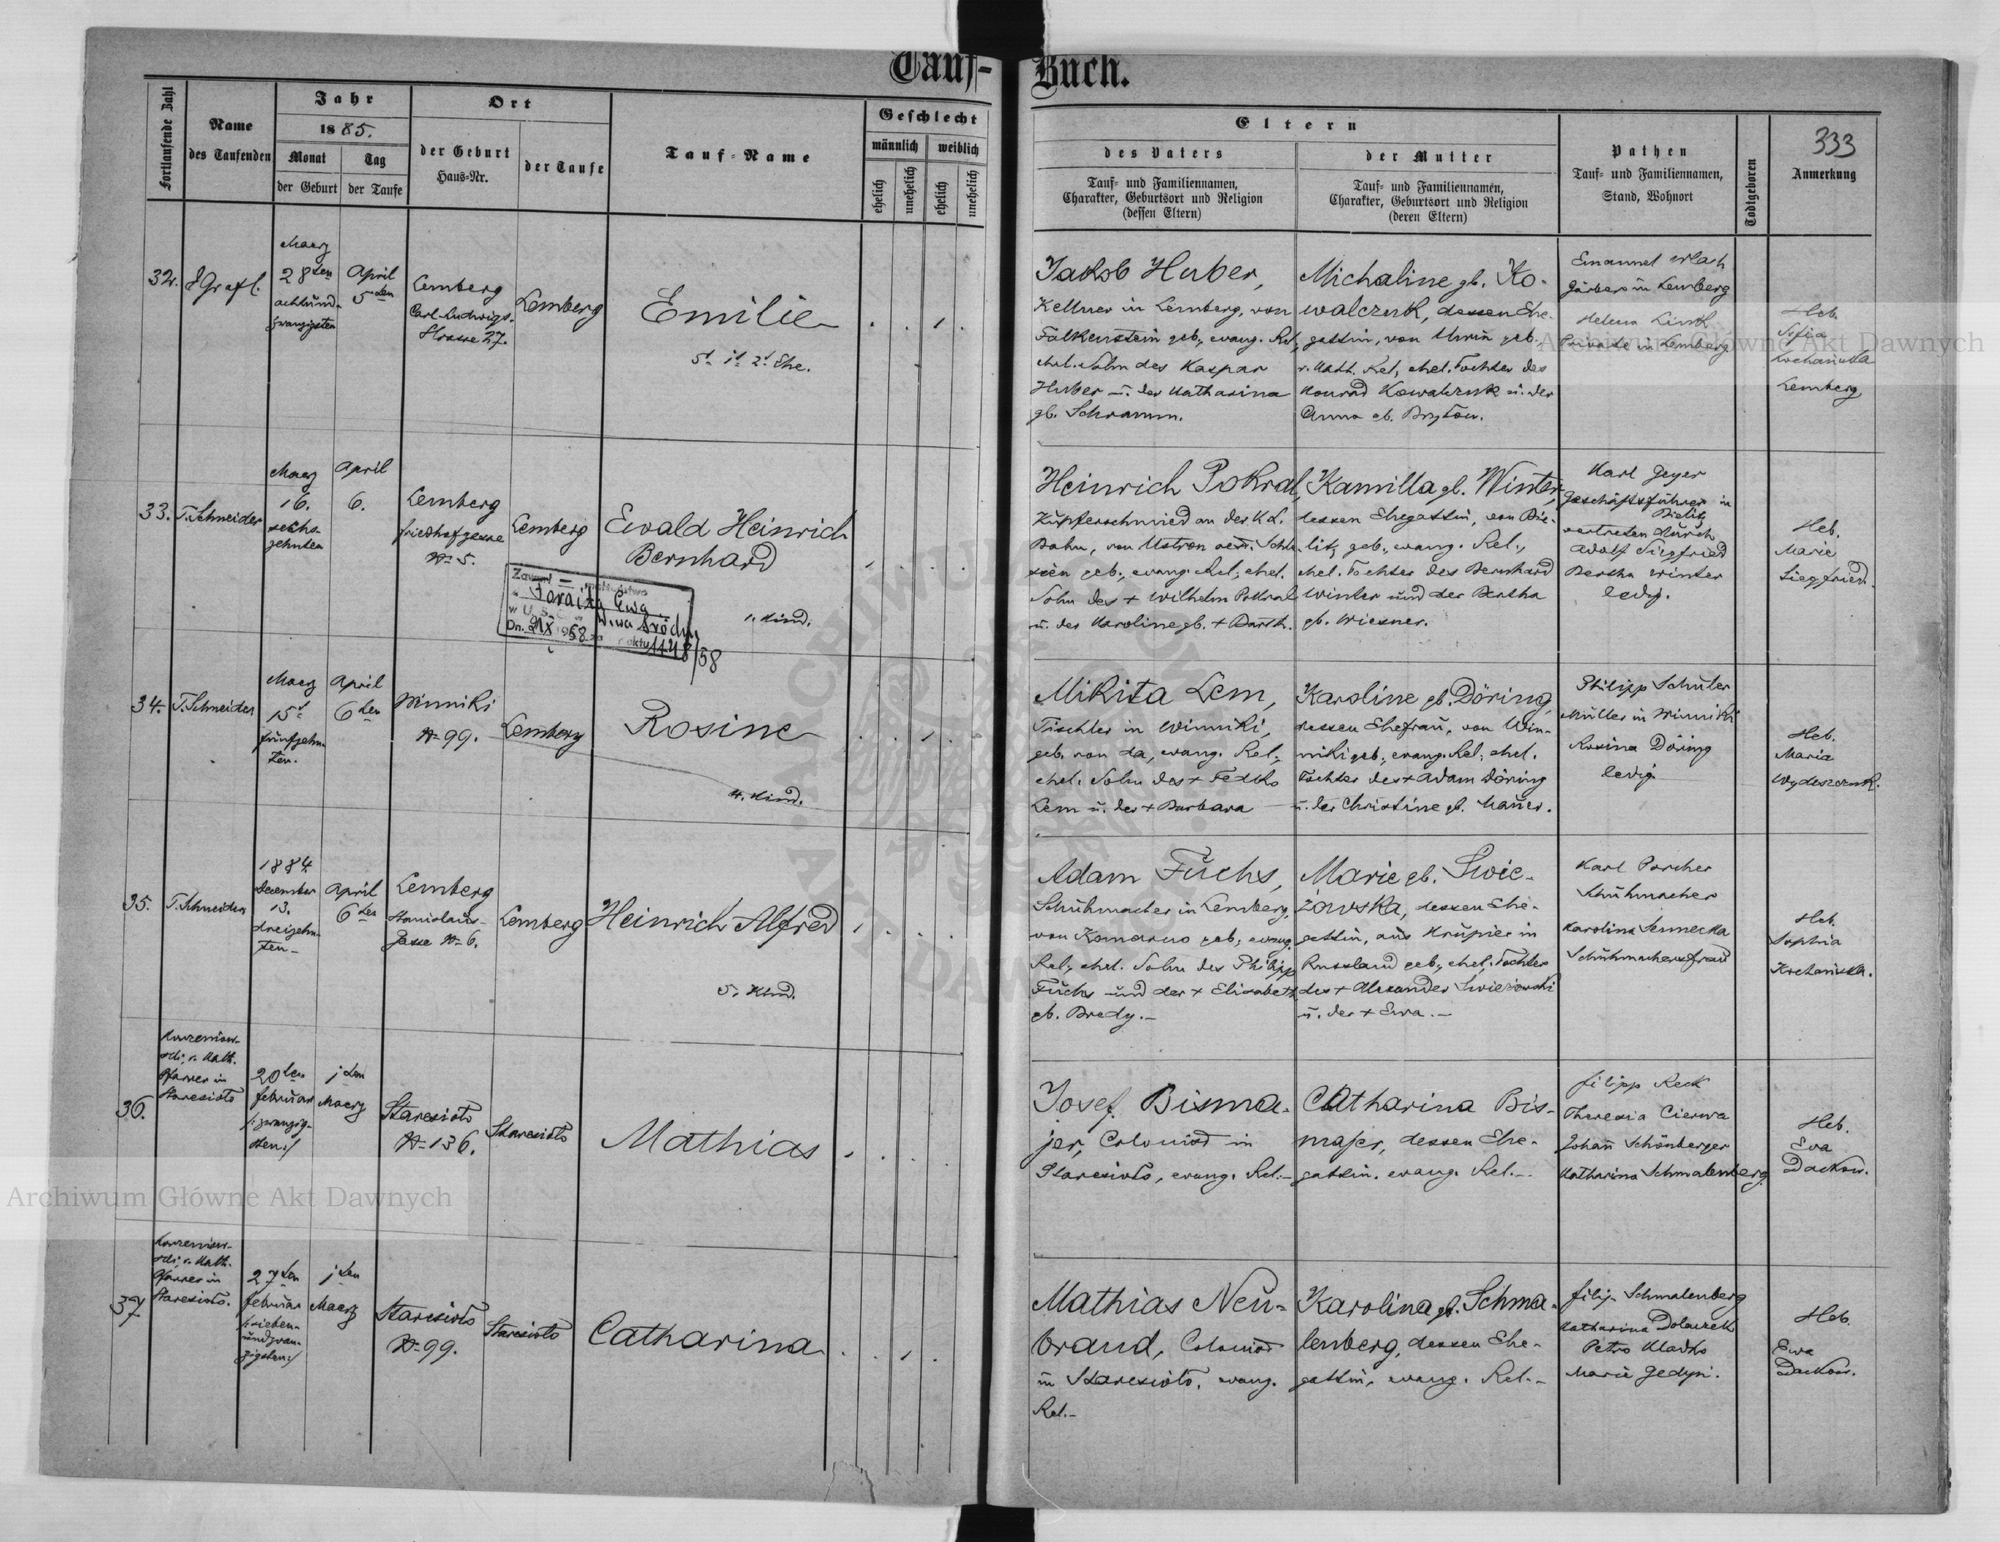 Tauf-Buch.
333
Fortlaufende Zahl
Name
des Taufenden
Jahr
1885.
Monat
der Geburt
Tag
der Taufe
Ort
der Geburt
Haus-Nr.
der Taufe
Tauf-Name
Geschlecht
männlich
weiblich
ehelich
unehelich
ehelich
unehelich
Eltern
des Vaters
Tauf- und Familiennamen,
Charakter, Geburtsort und Religion
(dessen Eltern)
der Mutter
Tauf- und Familiennamen,
Charakter, Geburtsort und Religion
(deren Eltern)
Pathen
Tauf- und Familiennamen,
Stand, Wohnort
Todtgeboren
Anmerkung
32.
Maerz
28ten
achtund-
zwanzigsten
April
5ten
Lemberg
Carl-Ludwigs-
Strasse 27.
Lemberg
Emilie
Jakob Huber,
Kellner in Lemberg, von
Falkenstein geb., evang. Rel.,
ehel. Sohn des Kaspar
Huber u. der Katharina
gb. Schramm.
Michaline gb. Ko-
walczuk, dessen Ehe-
gattin, von geb.,
r. kath. Rel., ehel. Tochter des
Konrad Kowalczuk u. der
Anna gb.
Emanuel
in Lemberg
Helena
Private in Lemberg
Heb.
Sofia
Lemberg
33.
T. Schneider
Maerz
16.
sechs-
zehnten
April
6.
Lemberg
Friedhofgasse
N= 5.
Lemberg
Ewald Heinrich
Bernhard
1. Kind.
Heinrich Pokral,
Kupferschmied an der K. L.
Bahn, von Ustron oest. Schle-
sien geb., evang. Rel., ehel.
Sohn des + Wilhelm Pokral
u. der Karoline gb. + Barth.
Kamilla gb. Winter,
dessen Ehegattin, von Bie-
litz geb., evang. Rel.,
ehel. Tochter des Bernhard
Winter und der Bertha
gb. Wiesner.
Karl Geyer
Geschäftsführer in
Bielitz
vertreten durch
Adolf Siegfried
Bertha Winter
ledig.
Heb.
Marie
Siegfried.
34.
T. Schneider
Maerz
15t
fünfzehn-
ten.
April
6ten
Winniki
N= 99.
Lemberg
Rosine
4. Kind.
Mikita Lem,
Tischler in Winniki,
geb. von da, evang. Rel.,
ehel. Sohn des + Fedko
Lem u. der + Barbara
Karoline gb. Döring,
dessen Ehefrau, von Win-
niki geb., evang. Rel., ehel.
Tochter des + Adam Döring
u. der Christine gb. Mauer.
Philipp Schuler
Müller in Winniki
Rosina Döring
ledig
Heb.
Maria
35.
T. Schneider
1884
December
13.
dreizehn-
ten -
April
6ten
Lemberg
Stanislaus-
Gasse N= 6.
Lemberg
Heinrich Alfred
5. Kind.
Adam Fuchs,
Schuhmacher in Lemberg,
von Komarno geb., evang.
Rel., ehel. Sohn des Philipp
Fuchs und der + Elisabeth
gb. Bredy. -
Marie gb. Swie-
żowska, dessen Ehe-
gattin, aus Krupier in
Russland geb., ehel. Tochter
des + Alexander Swiezowski
u. der + Ewa. -
Karl Porcher
Schuhmacher
Karolina
Schuhmachersfrau
Heb.
Sophia
36.
r. kath.
Pfarrer in
Staresioło
20ten
Februar
/:zwanzig-
sten:/
1ten
Maerz
Staresioło
N= 136.
Staresioło
Mathias
Josef Bisma-
jer, Colonist in
Staresioło, evang. Rel. -
Catharina Bis-
majer, dessen Ehe-
gattin. evang. Rel. -
Filipp Keck
Theresia
Johann Schönberger
Katharina Schmalenberg.
Heb.
Eva
Dackow.
37
r. kath.
Pfarrer in
Staresioło.
27ten
Februar
/:sieben-
undzwan-
zigsten:/
1ten
Maerz
Staresioło
N= 99.
Staresioło
Catharina
Mathias Neu-
brand, Colonist
in Staresioło. evang.
Rel. -
Karolina gb. Schma-
lenberg, dessen Ehe-
gattin, evang. Rel. -
Filip Schmalenberg
Katharina
Petro
Marie
Heb.
Ewa
Dackow.
Archiwum Główne Akt Dawnych
Archiwum Główne Akt Dawnych